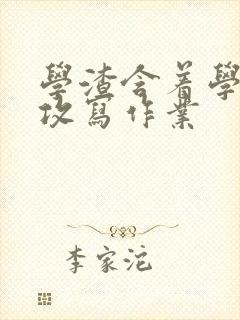 學渣含着學
攻寫作業
李家沱